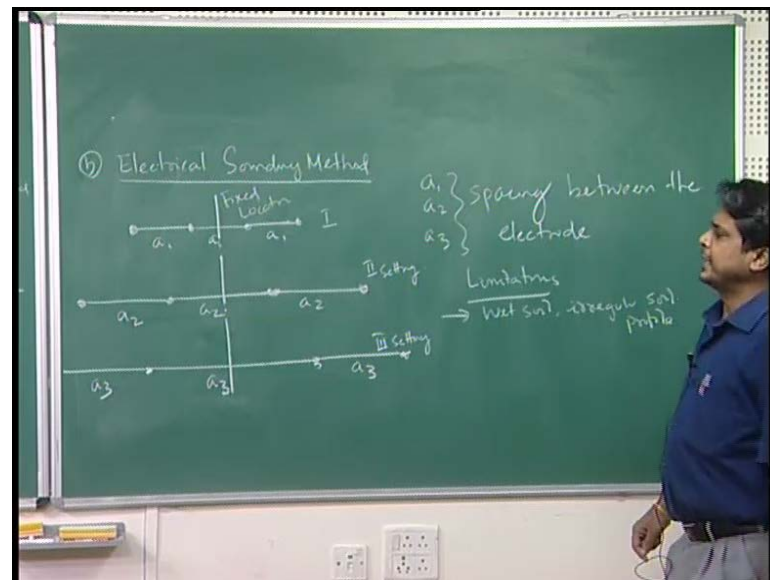 (b) Electrical Sounding Method
Fixed
Location
a₁ a₁ a₁ I
II setting
a₂ a₂ a₂
III setting
a₃ a₃ a₃
a₁
a₂
a₃
spacing between the
electrode
Limitations
→ Wet soil, irregular soil
profile